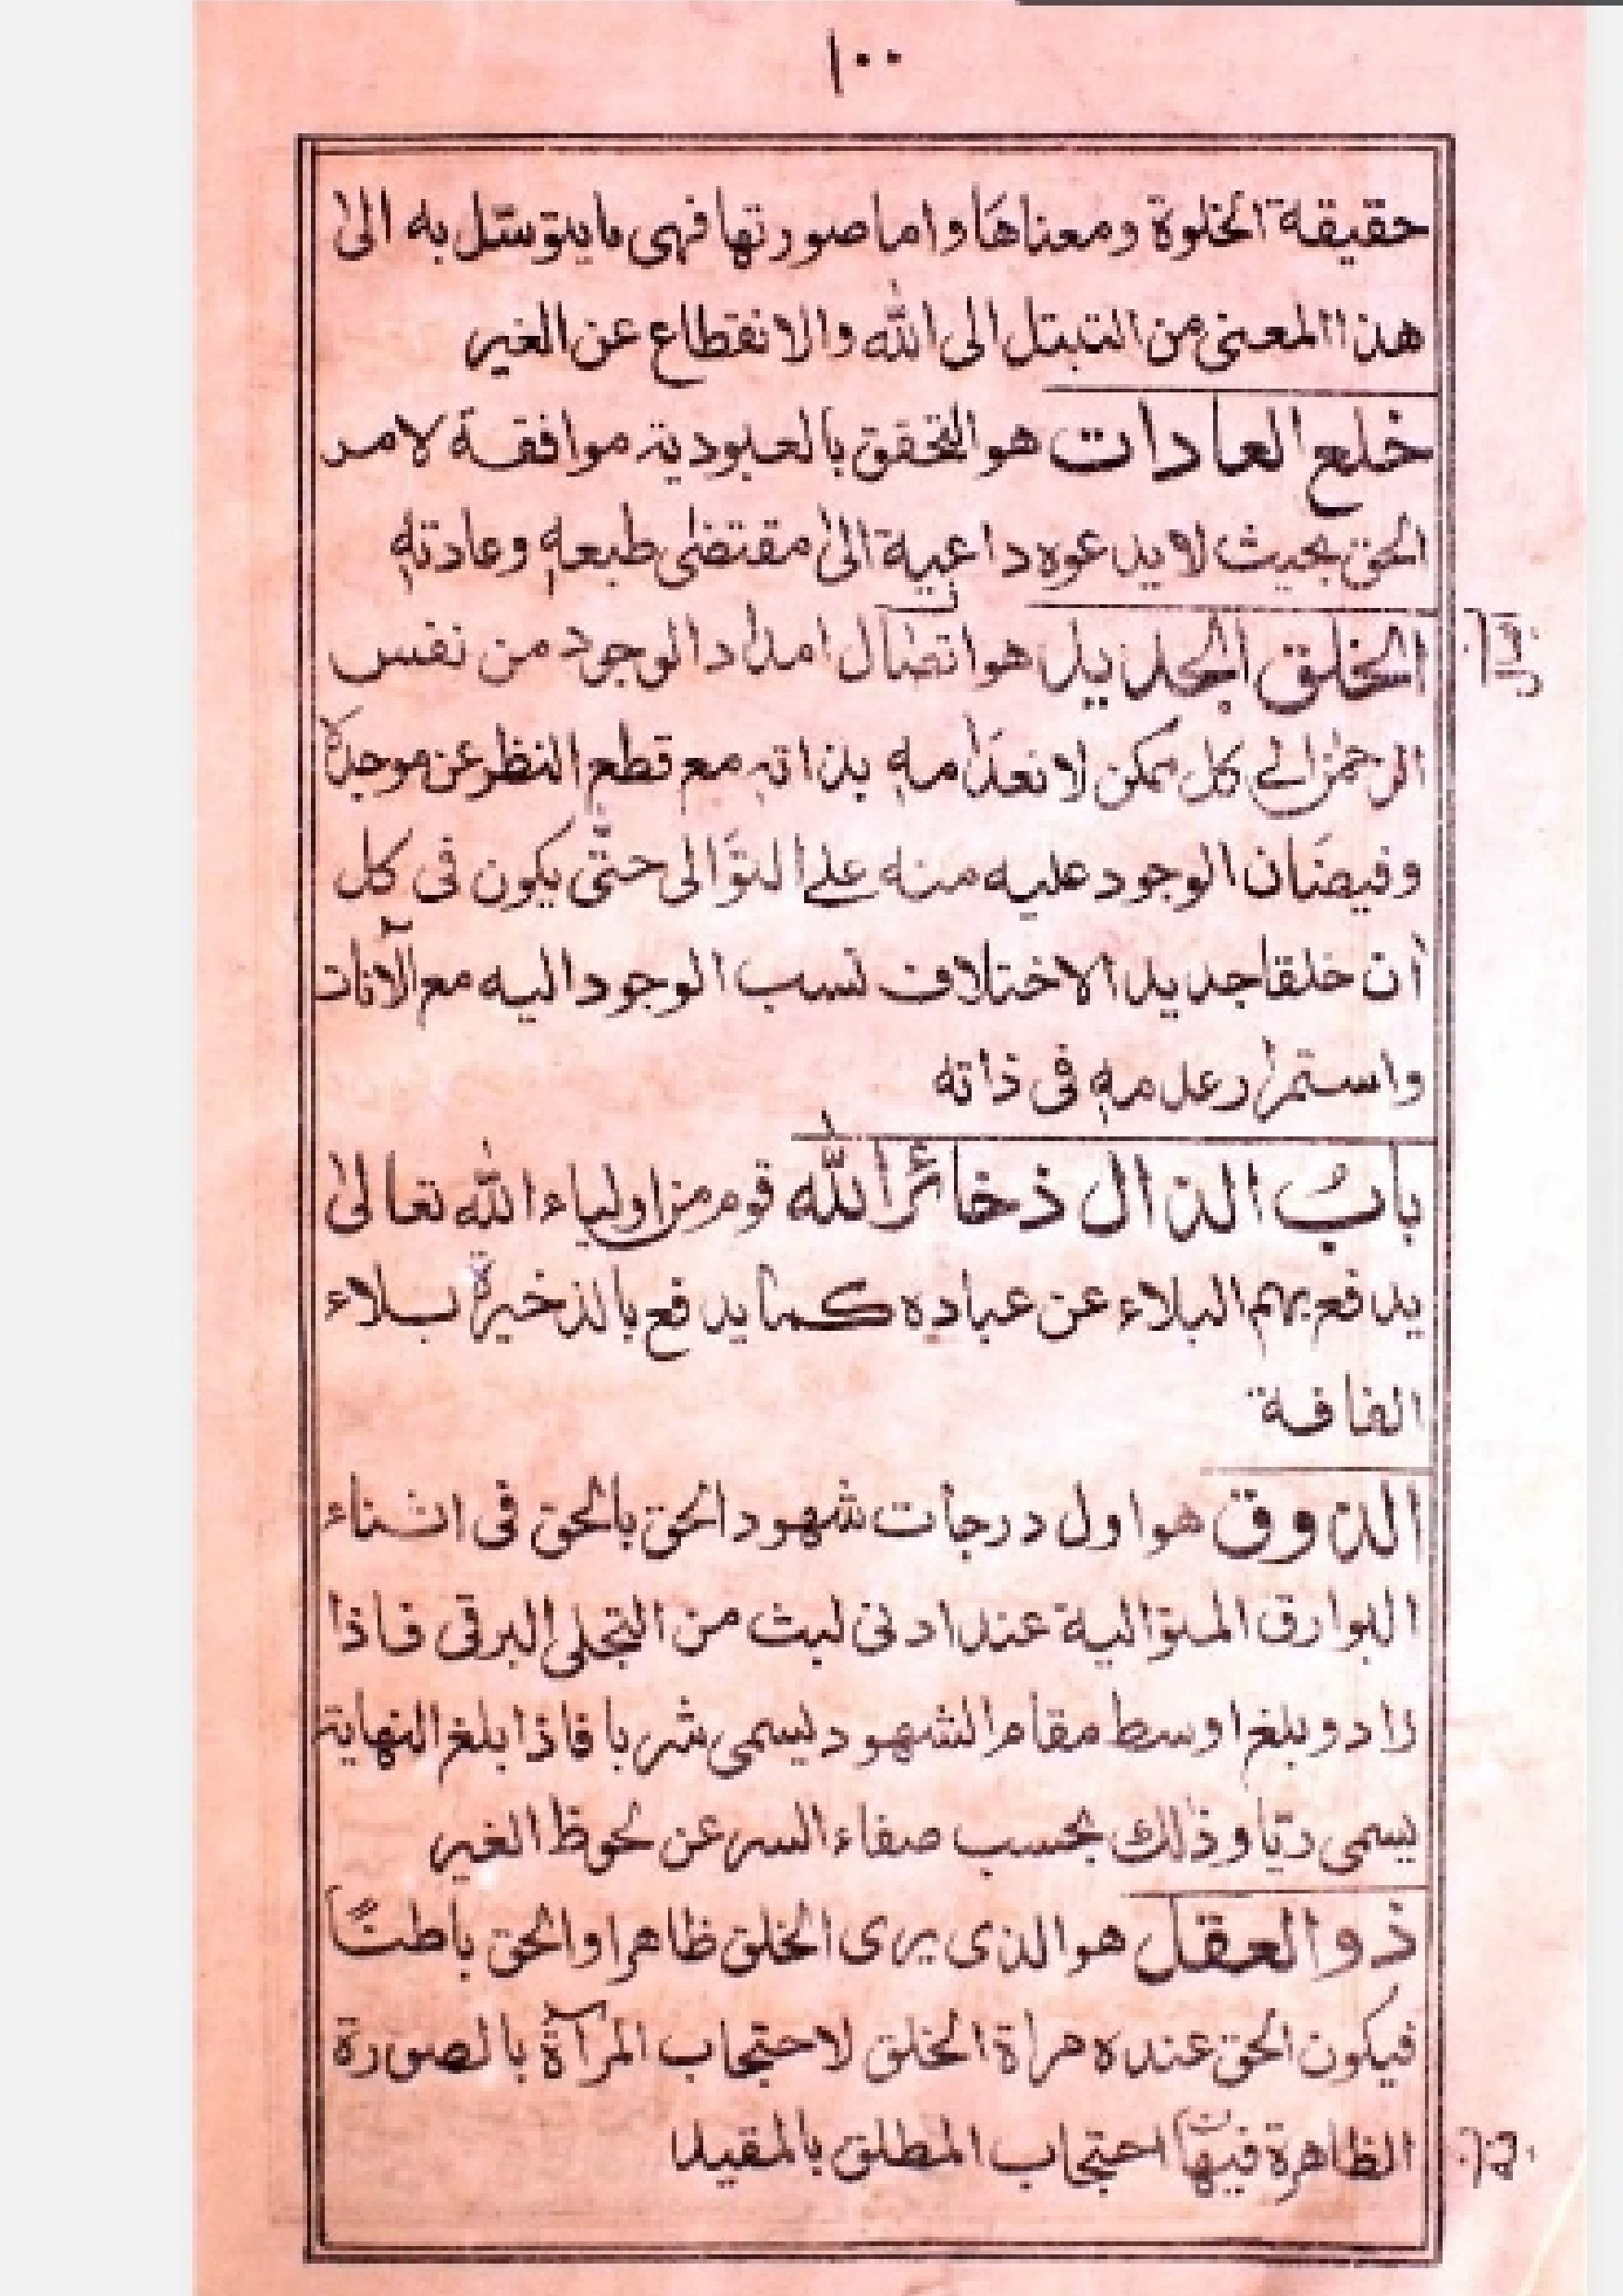 ١٠٠
حقيقة الخلوة ومعناها واما صورتها فهى ما يتوسّل به الىٰ
هذا المعنى من التبتل الى الله والانقطاع عن الغير
خلع العادات هو التحقق بالعبودية موافقة لامر
الحق بحيث لا يدعوه داعية الىٰ مقتضىٰ طبعهٖ وعادتهٖ
الخلق الجديد هو اتصال امداد الوجود من نفس
الرحمٰن الى كل ممكن لانعدامهٖ بذاتهٖ مع قطع النظر عن موجده
وفيضان الوجود عليه منه على التوّالى حتّى يكون فى كل
اٰن خلقا جديدا لاختلاف نسب الوجود اليه مع الآنات
واستمرار عدمهٖ فى ذاته
بابُ الذال ذخائر الله قوم من اولياء الله تعالىٰ
يدفع بهم البلاء عن عباده كما يدفع بالذخيرة بلاء
الفاقة
الذوق هو اول درجات شهود الحق بالحق فى اثناء
البوارق المتوالية عند ادنى لبث من التجلى البرقى فاذا
زاد وبلغ اوسط مقام الشهود ليسمى شربا فاذا بلغ النهاية
يسمى ريّا وذٰلك بحسب صفاء السر عن لحوظ الغير
ذو العقل هو الذى يرى الخلق ظاهرا والحق باطنًا
فيكون الحق عنده مراة الخلق لاحتجاب المرآة بالصورة
الظاهرة فيها احتجاب المطلق بالمقيد